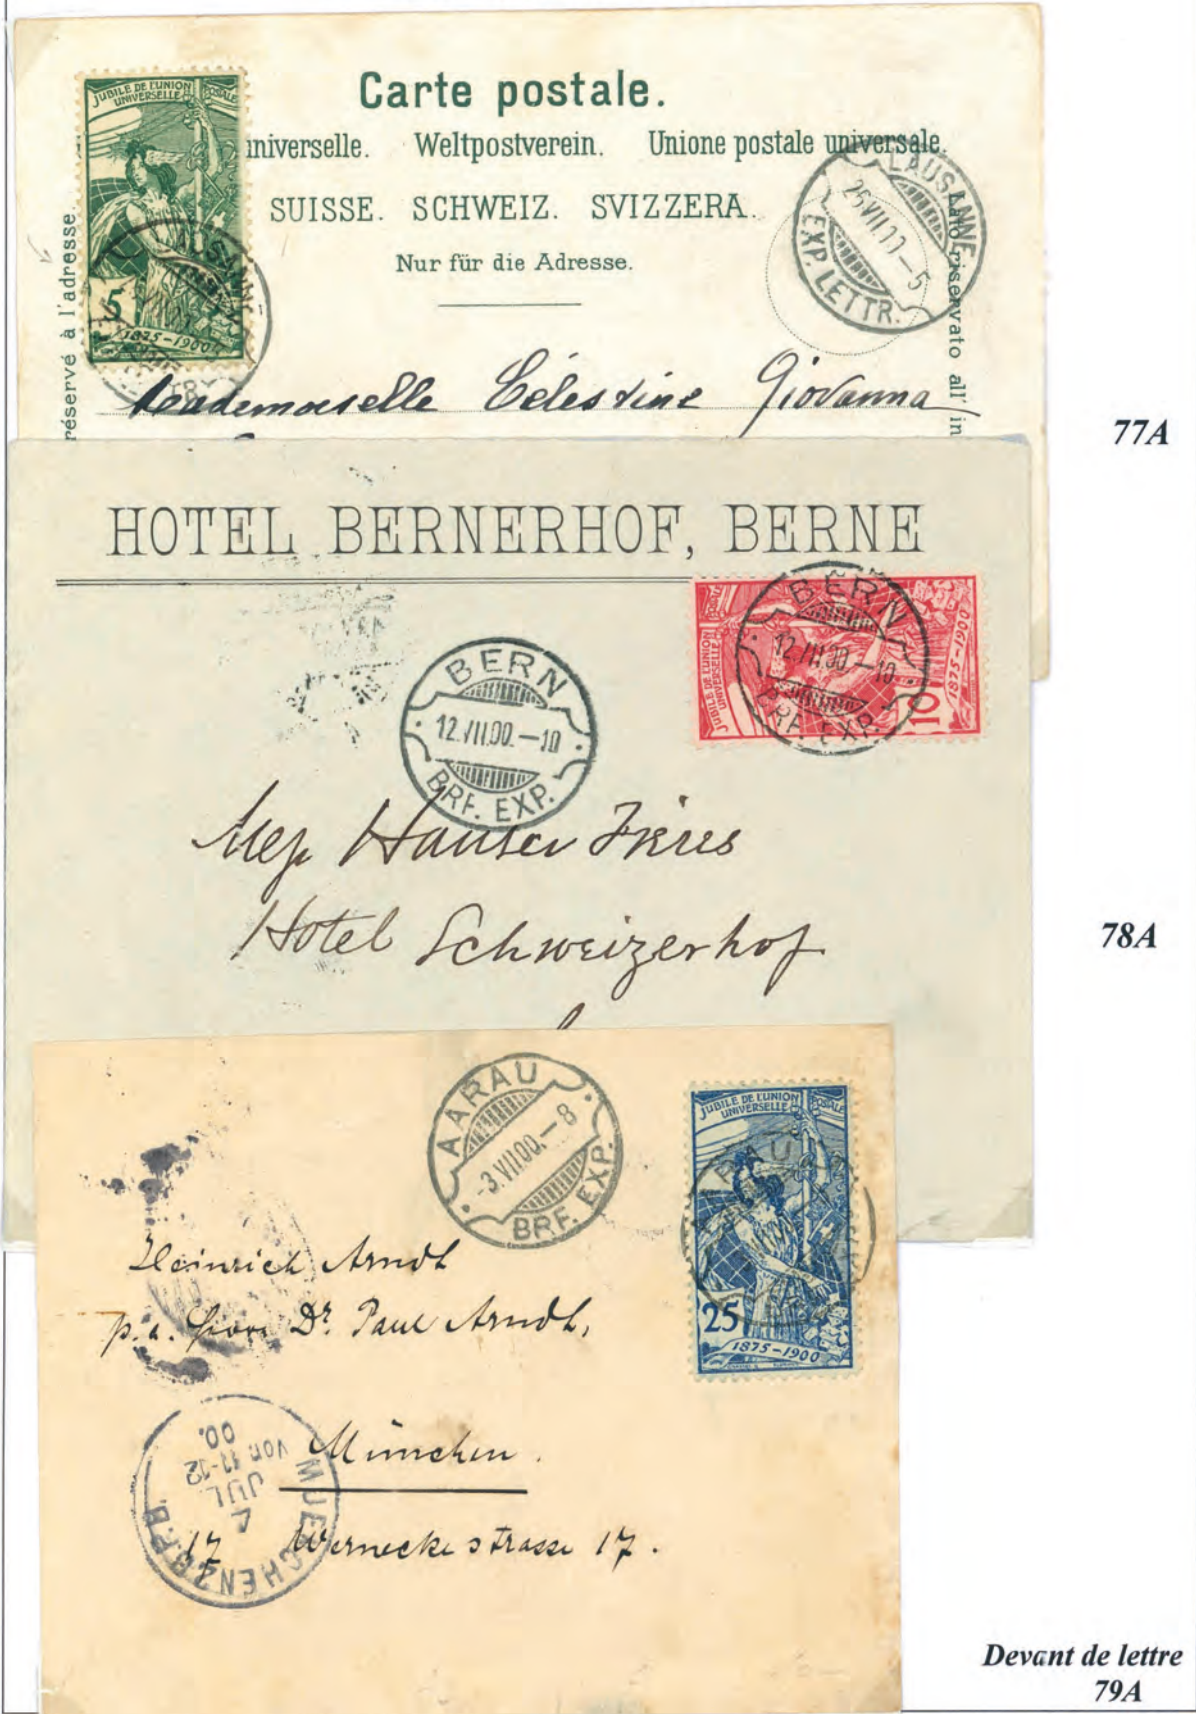 Carte postale.
universelle. Weltpostverein. Unione postale universale.
SUISSE. SCHWEIZ. SVIZZERA.
Nur für die Adresse.
réservé à l'adresse
Lato riservato all' in
JUBILÉ DE L'UNION POSTALE
UNIVERSELLE
5
1875-1900
LAUSANNE
LAUSANNE
EXP. LETTR.
Mademoiselle Célestine Giovanna
77A
HOTEL BERNERHOF, BERNE
BERN
12.VII.00.-10
BRF. EXP.
JUBILÉ DE L'UNION POSTALE
UNIVERSELLE
10
1875-1900
BERN
12.VII.00.-10
BRF. EXP.
Hauser Frères
Hotel Schweizerhof
78A
AARAU
-3.VII.00.-8
BRF. EXP.
JUBILÉ DE L'UNION POSTALE
UNIVERSELLE
25
1875-1900
AARAU
Heinrich Arndt
p. a. Herrn Dr. Paul Arndt,
München.
17 Werneckestrasse 17.
MUENCHEN
4
JUL
VOR. 11-12
00.
Devant de lettre
79A